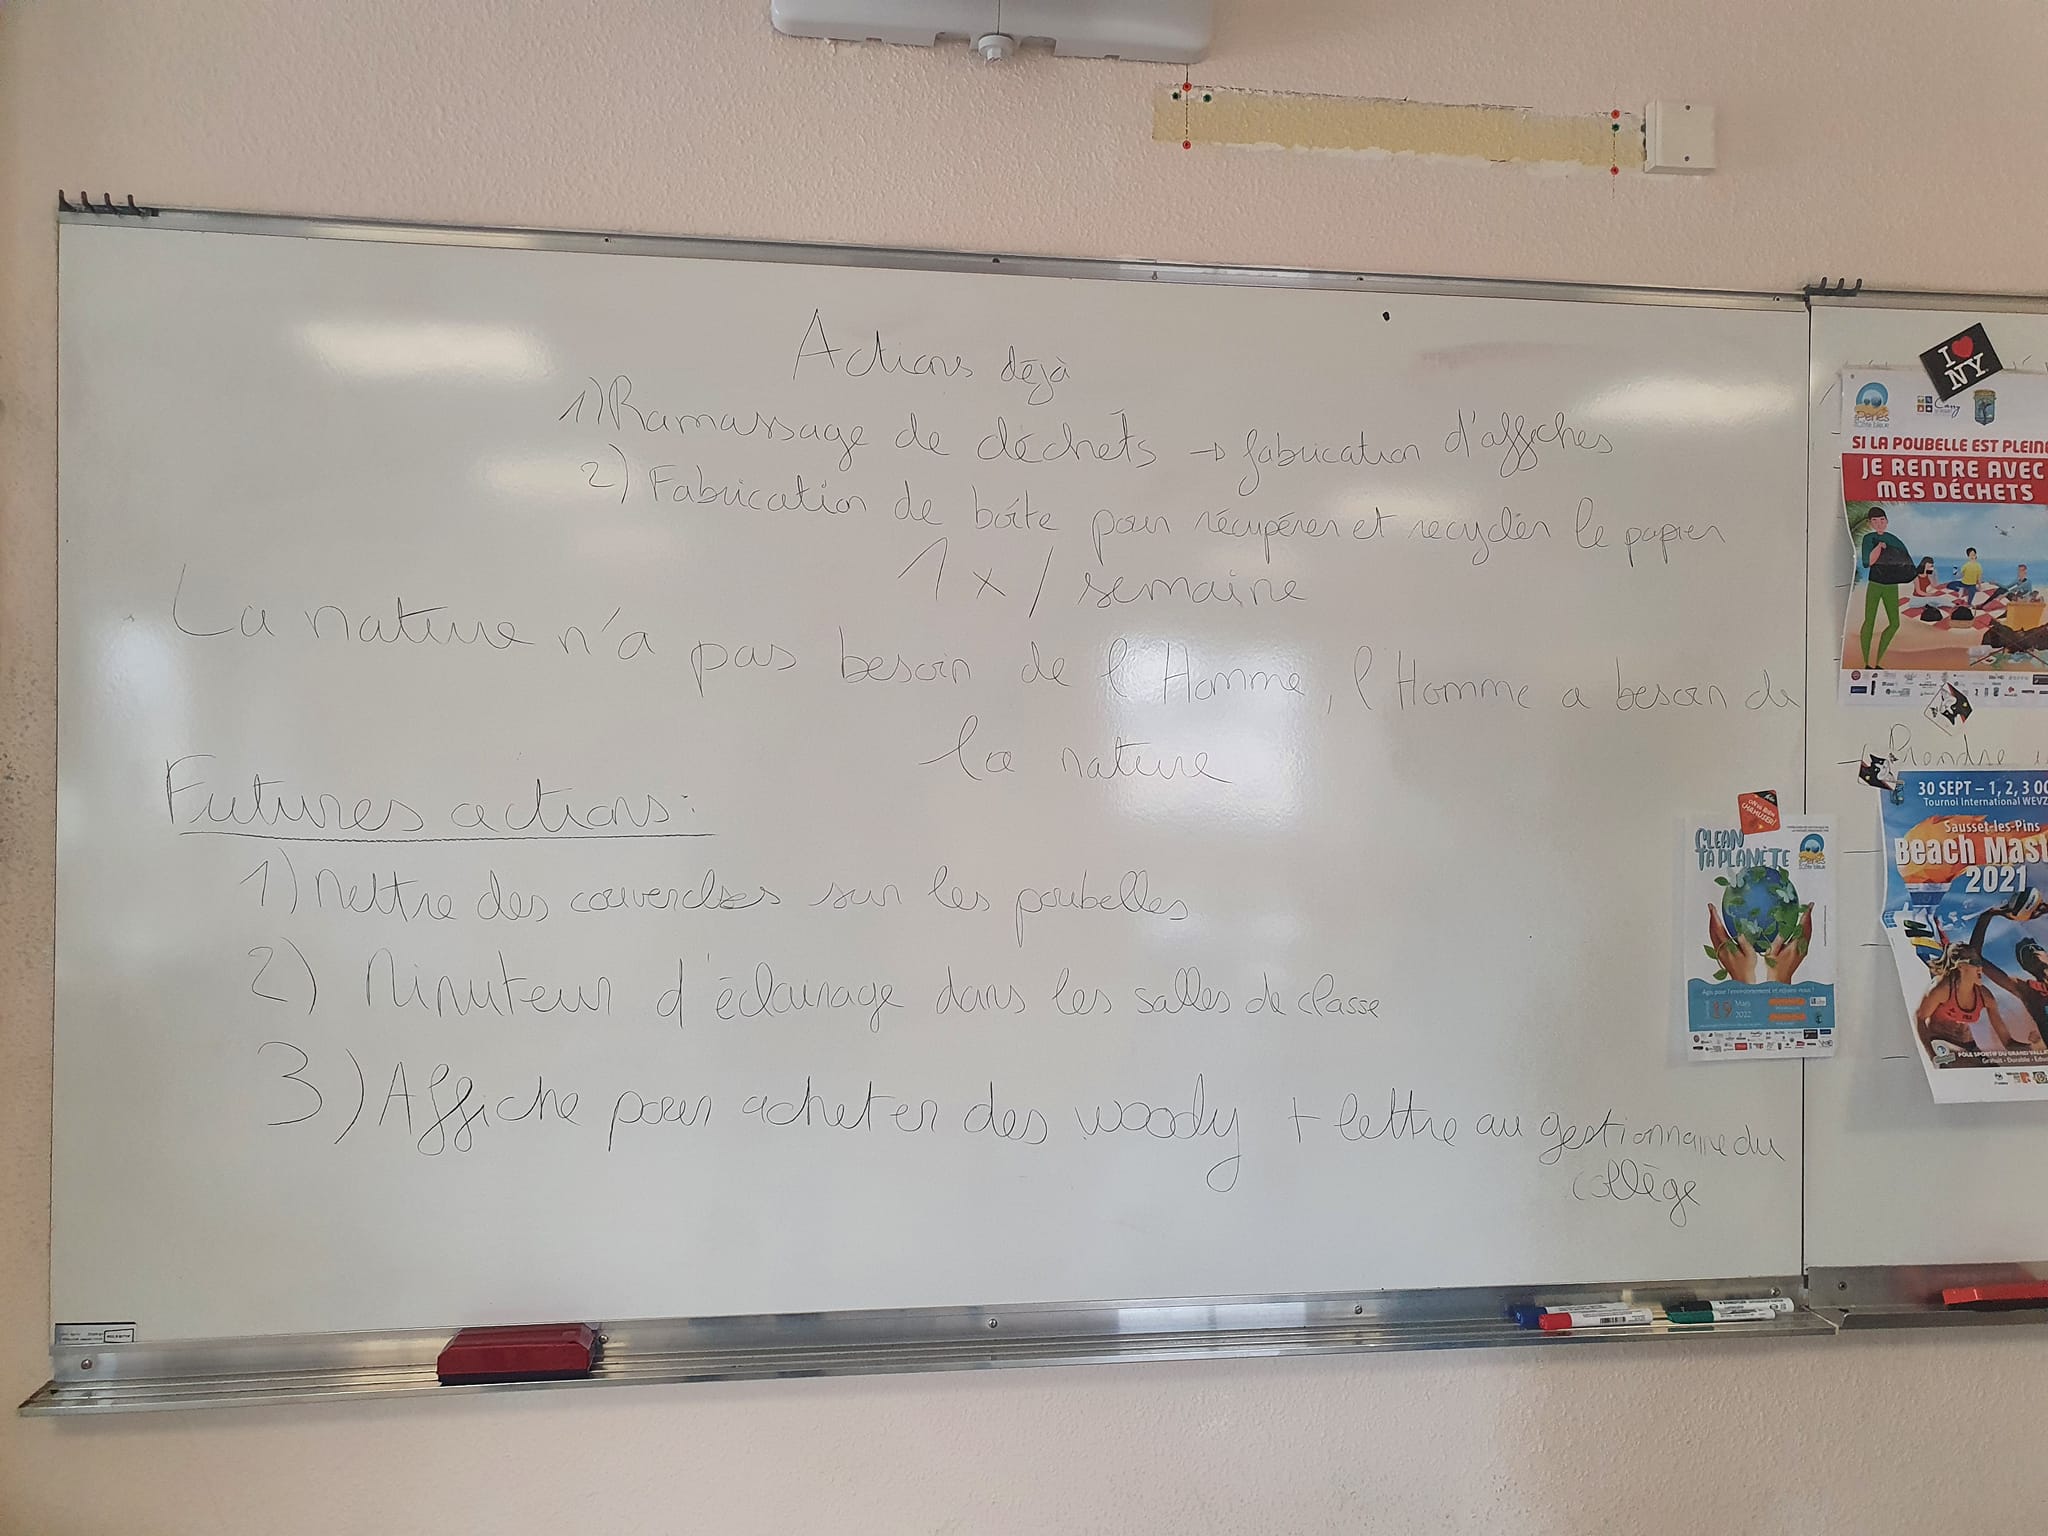 Actions déjà
1) Ramassage de déchets → fabrication d'affiches
2) Fabrication de boîte pour récupérer et recycler le papier
1 x / semaine
La nature n'a pas besoin de l'Homme, l'Homme a besoin de
la nature
Futures actions :
1) Mettre des couvercles sur les poubelles
2) Minuteur d'éclairage dans les salles de classe
3) Affiche pour acheter des woody + lettre au gestionnaire du
collège
I ♥
NY
SI LA POUBELLE EST PLEINE
JE RENTRE AVEC
MES DÉCHETS
Prendre
30 SEPT – 1, 2, 3 OC
Tournoi International WEVZ
Sausset-les-Pins
Beach Mast
2021
CLEAN
TA PLANÈTE
Agis pour l'environnement et rejoins-nous !
Mars
2022